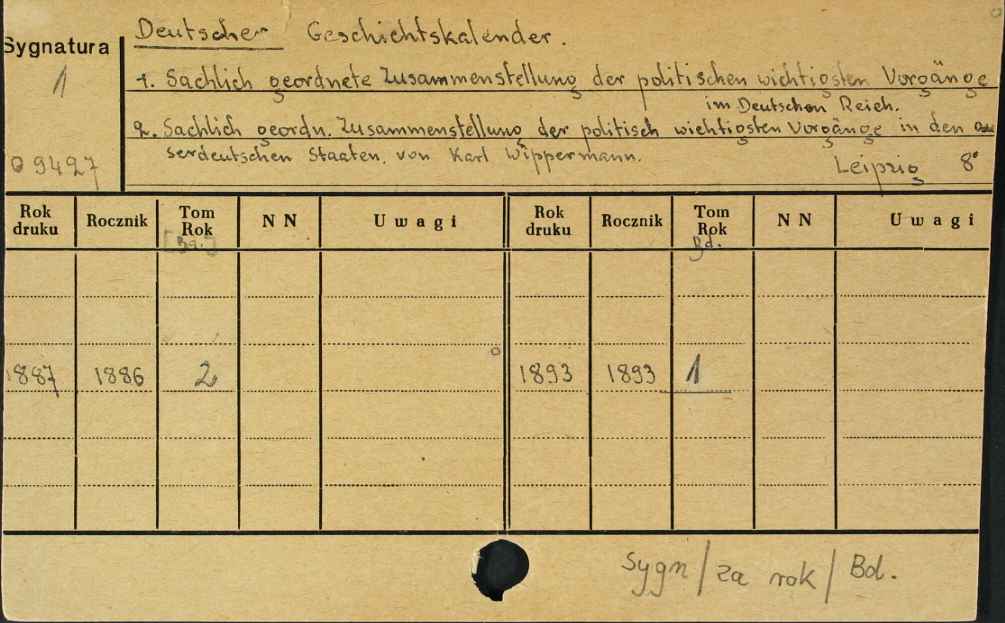 Sygnatura
1
0 9427
Deutscher Geschichtskalender.
1. Sachlich geordnete Zusammenstellung der politischen wichtigsten Vorgänge
im Deutschen Reich.
2. Sachlich geordn. Zusammenstellung der politisch wichtigsten Vorgänge in den
serdeutschen Staaten, von Karl Wippermann.
Leipzig 8°
Rok druku Rocznik Tom Rok NN Uwagi Rok druku Rocznik Tom Rok NN Uwagi
[Bd.] Bd.
1887 1886 2 1893 1893 1
Sygn/za rok/Bd.